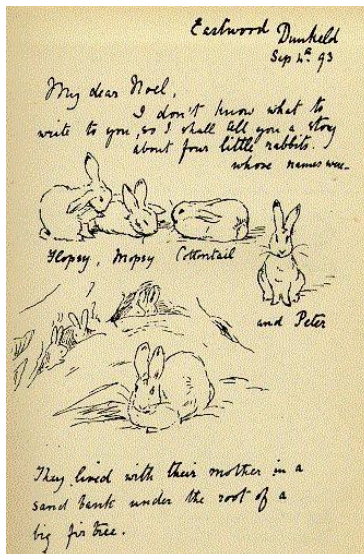 Eastwood Dunkeld
Sep 4th 93
My dear Noel,
I don't know what to
write to you, so I shall tell you a story
about four little rabbits.
whose names were—
Flopsy, Mopsy Cottontail
and Peter
They lived with their mother in a
sand bank under the root of a
big fir tree.